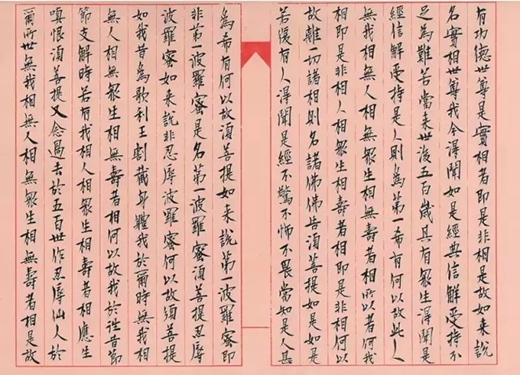 有功德世尊是實相者即是非相是故如來說
名實相世尊我今得聞如是經典信解受持不
足為難若當來世後五百歲其有眾生得聞是
經信解受持是人則為第一希有何以故此人
無我相無人相無眾生相無壽者相所以者何我
相即是非相人相眾生相壽者相即是非相何以
故離一切諸相則名諸佛佛告須菩提如是如是
若復有人得聞是經不驚不怖不畏當知是人甚
為希有何以故須菩提如來說第一波羅蜜即
非第一波羅蜜是名第一波羅蜜須菩提忍辱
波羅蜜如來說非忍辱波羅蜜何以故須菩提
如我昔為歌利王割截身體我於爾時無我相
無人相無眾生相無壽者相何以故我於往昔節
節支解時若有我相人相眾生相壽者相應生
嗔恨須菩提又念過去於五百世作忍辱仙人於
爾所世無我相無人相無眾生相無壽者相是故